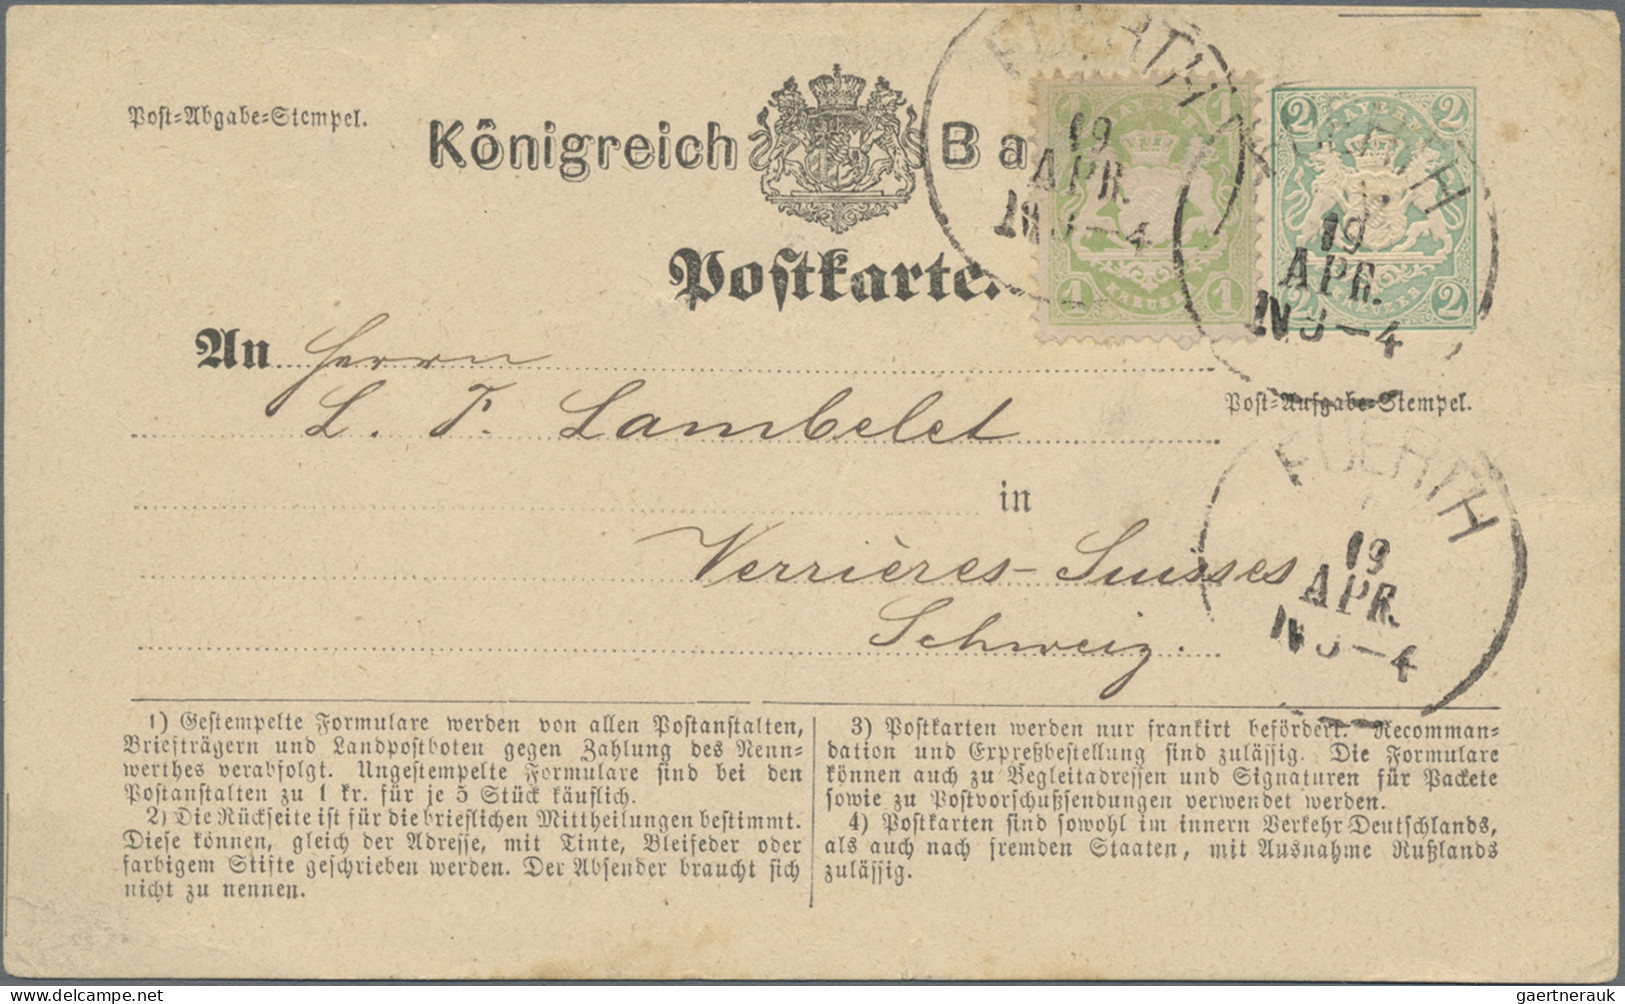 Post-Abgabe-Stempel.
Königreich Ba
Postkarte.
FUERTH
19
APR.
1 1
KREUZER
1 1
FUERTH
19
APR.
N 3-4
2 2
2 2
An Herrn
L. F. Lambelet
Post-Aufgabe-Stempel.
in
Verrières-Suisses
Schweiz.
FUERTH
19
APR.
N 3-4
1) Gestempelte Formulare werden von allen Postanstalten,
Briefträgern und Landpostboten gegen Zahlung des Nenn-
werthes verabfolgt. Ungestempelte Formulare sind bei den
Postanstalten zu 1 kr. für je 5 Stück käuflich.
2) Die Rückseite ist für die brieflichen Mittheilungen bestimmt.
Diese können, gleich der Adresse, mit Tinte, Bleifeder oder
farbigem Stifte geschrieben werden. Der Absender braucht sich
nicht zu nennen.
3) Postkarten werden nur frankirt befördert. Recomman-
dation und Expreßbestellung sind zulässig. Die Formulare
können auch zu Begleitadressen und Signaturen für Packete
sowie zu Postvorschußsendungen verwendet werden.
4) Postkarten sind sowohl im innern Verkehr Deutschlands,
als auch nach fremden Staaten, mit Ausnahme Rußlands
zulässig.
delcampe.net
gaertnerauk